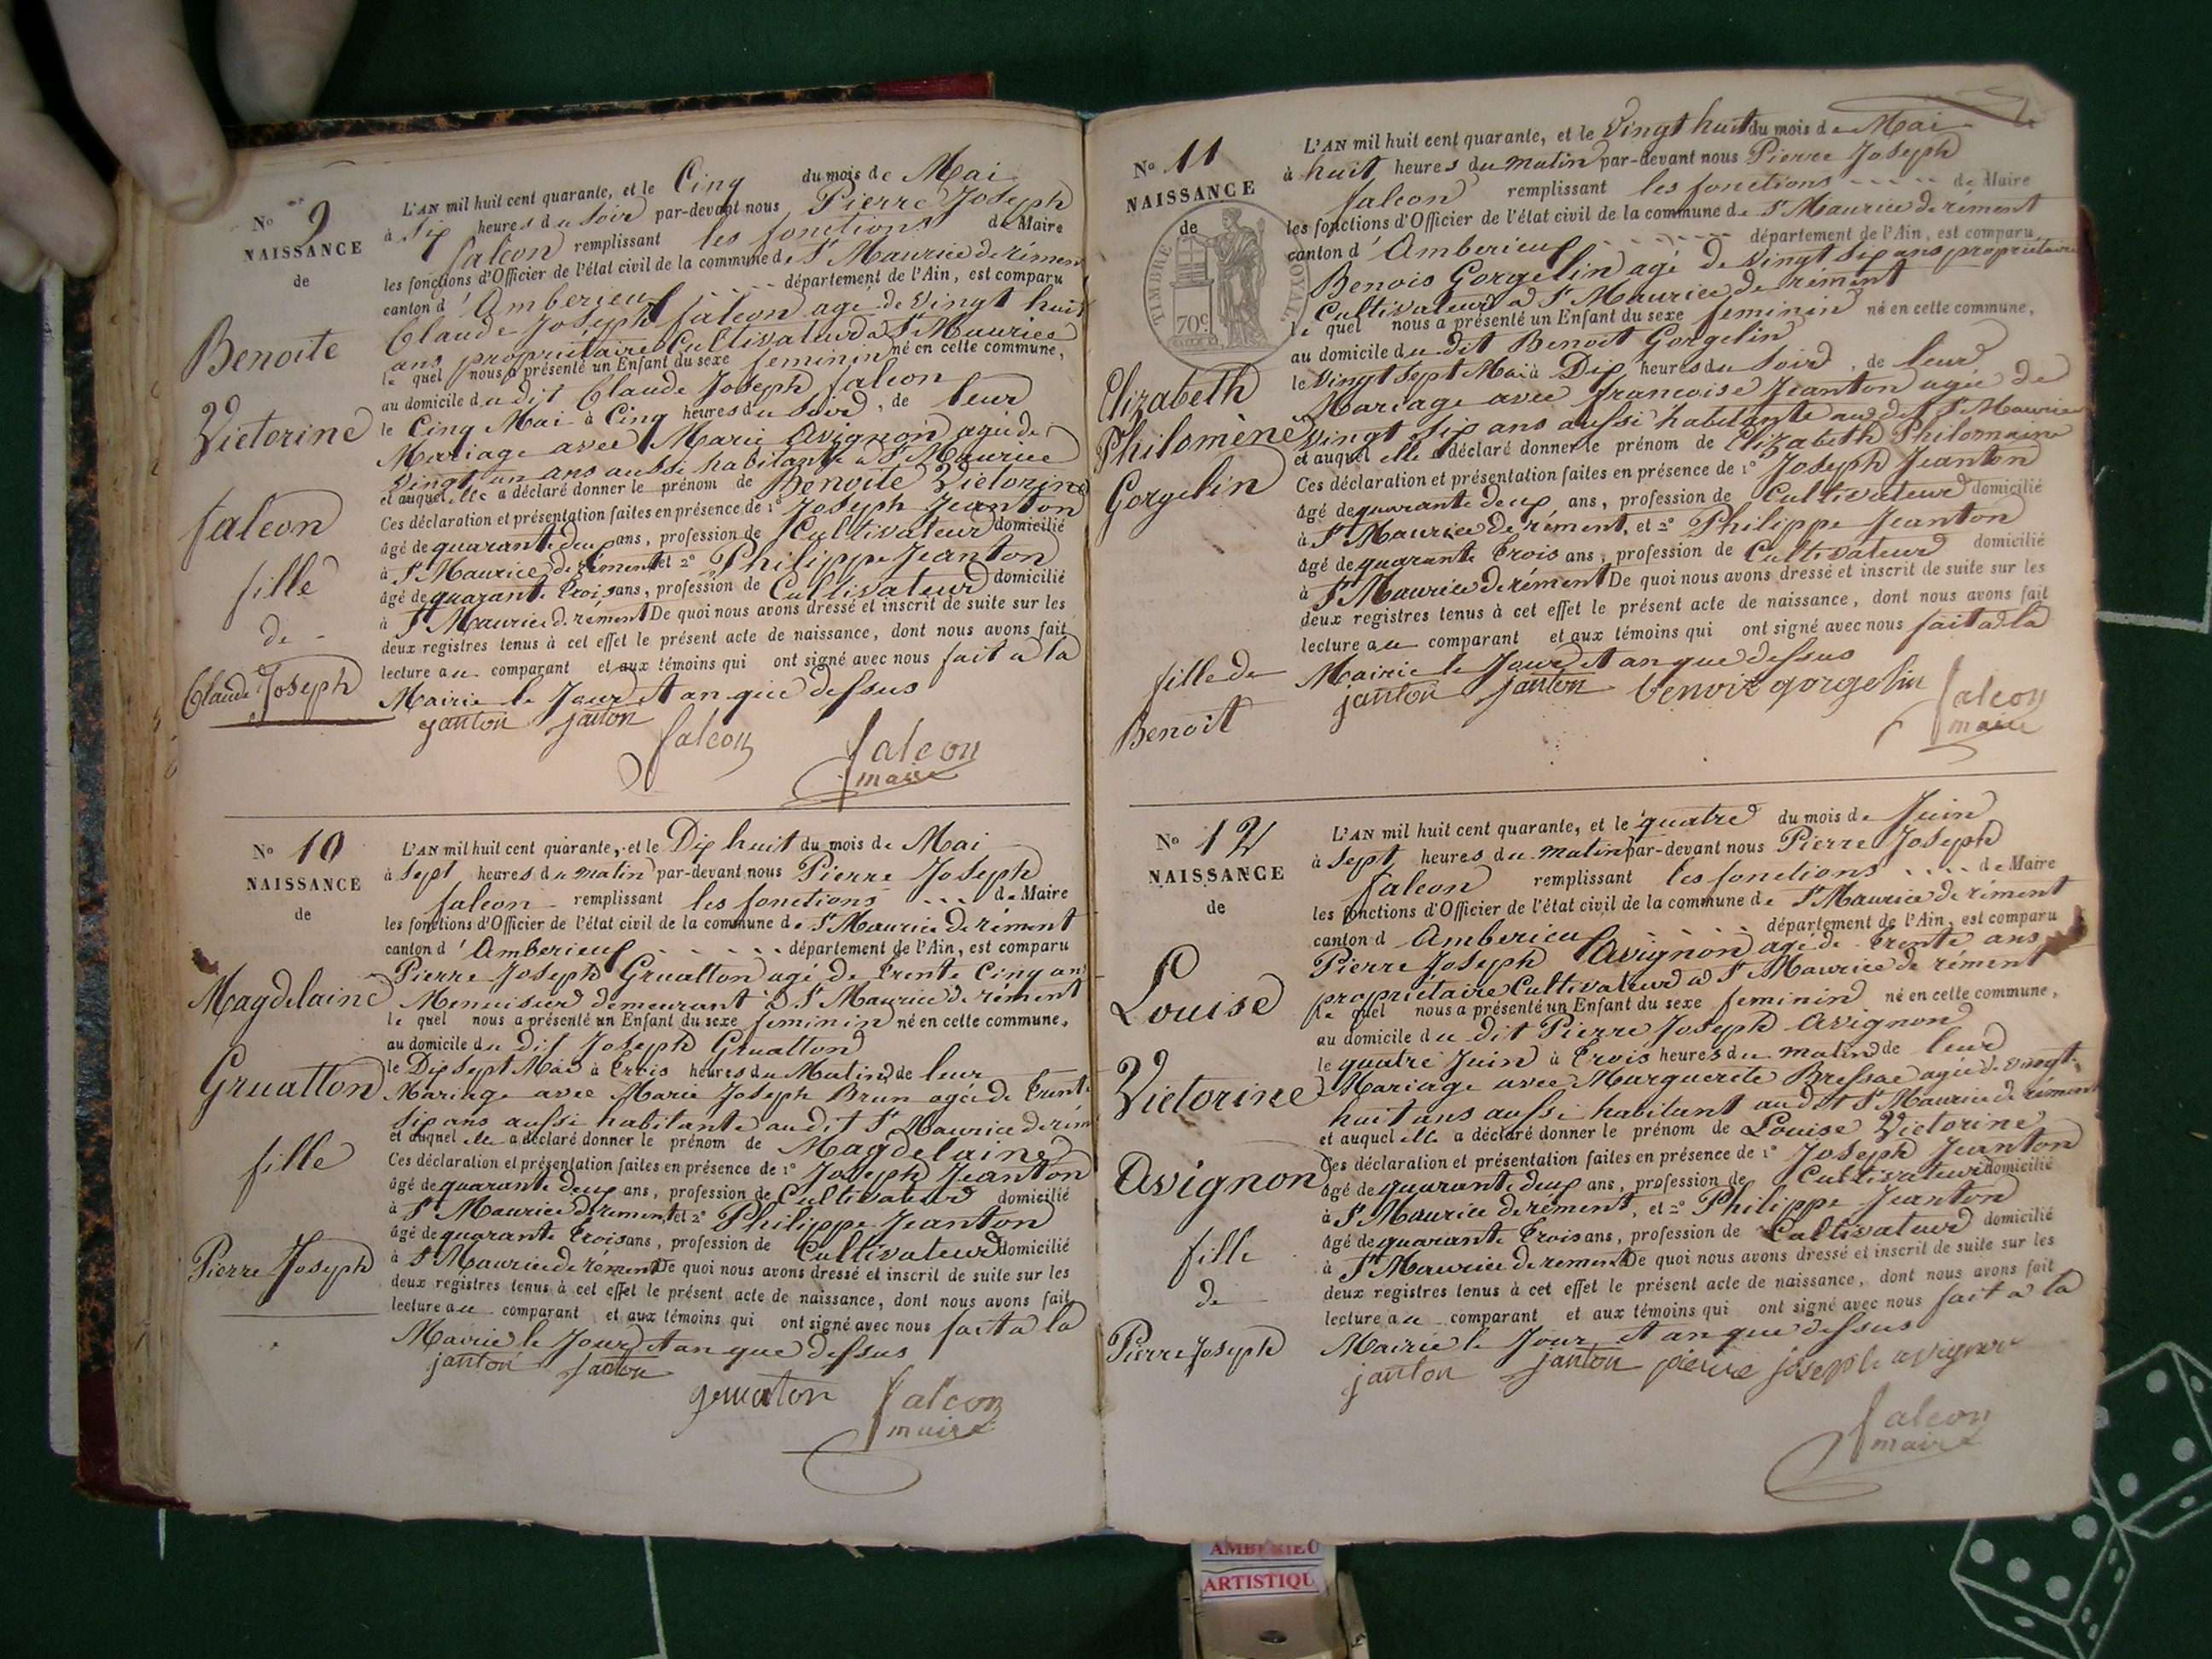 No 9
NAISSANCE
de
Benoite
Victorine
falcon
fille
de
Claude Joseph
L'AN mil huit cent quarante, et le Cinq du mois de Mai
à Six heures du Soir par-devant nous Pierre Joseph
falcon remplissant les fonctions de Maire
les fonctions d'Officier de l'état civil de la commune de St Maurice de rémen
canton d'Amberieux département de l'Ain, est comparu
Claude Joseph falcon age de Vingt huit
ans propriétaire Cultivateur a St Maurice
le quel nous a présenté un Enfant du sexe feminin né en cette commune,
au domicile du dit Claude Joseph falcon
le Cinq Mai à Cinq heures du Soir, de leur
Mariage avec Marie Avignon agée de
Vingt un ans aussi habitante a St Maurice
et auquel elle a déclaré donner le prénom de Benoite Victorine
Ces déclaration et présentation faites en présence de 1° Joseph Jeanton
âgé de quarante deux ans, profession de Cultivateur domicilié
à St Maurice de rement et 2° Philippe Jeanton
âgé de quarante trois ans, profession de Cultivateur domicilié
à St Maurice de rément De quoi nous avons dressé et inscrit de suite sur les
deux registres tenus à cet effet le présent acte de naissance, dont nous avons fait
lecture au comparant et aux témoins qui ont signé avec nous fait a la
Mairie le Jour et an que dessus
janton janton
falcon falcon
maire
No 10
NAISSANCE
de
Magdelaine
Gruatton
fille
Pierre Joseph
L'AN mil huit cent quarante, et le Dix huit du mois de Mai
à Sept heures du matin par-devant nous Pierre Joseph
falcon remplissant les fonctions de Maire
les fonctions d'Officier de l'état civil de la commune de St Maurice de rément
canton d'Amberieux département de l'Ain, est comparu
Pierre Joseph Gruatton agé de trente Cinq ans
Menuisier demeurant à St Maurice de rément
le quel nous a présenté un Enfant du sexe feminin né en cette commune,
au domicile du dit Joseph Gruatton
le Dix Sept Mai à trois heures du Matin de leur
Mariage avec Marie Joseph Brun agée de trente
six ans aussi habitante audit St Maurice de rém
et auquel elle a déclaré donner le prénom de Magdelaine
Ces déclaration et présentation faites en présence de 1° Joseph Jeanton
âgé de quarante deux ans, profession de Cultivateur domicilié
à St Maurice de rement, et 2° Philippe Jeanton
âgé de quarante trois ans, profession de Cultivateur domicilié
à St Maurice de rément De quoi nous avons dressé et inscrit de suite sur les
deux registres tenus à cet effet le présent acte de naissance, dont nous avons fait
lecture au comparant et aux témoins qui ont signé avec nous fait a la
Mairie le Jour et an que dessus
janton janton
gruaton falcon
maire
No 11
NAISSANCE
de
TIMBRE ROYAL
70c
Elizabeth
Philomène
Gorgelin
fille de
Benoit
L'AN mil huit cent quarante, et le Vingt huit du mois de Mai
à huit heures du matin par-devant nous Pierre Joseph
falcon remplissant les fonctions de Maire
les fonctions d'Officier de l'état civil de la commune de St Maurice de rément
canton d'Amberieux département de l'Ain, est comparu
Benois Gorgelin agé de vingt six ans propriétaire
Cultivateur a St Maurice de rément
le quel nous a présenté un Enfant du sexe feminin né en cette commune,
au domicile du dit Benoit Gorgelin
le Vingt Sept Mai à Dix heures du Soir, de leur
Mariage avec francoise Jeanton agée de
Vingt six ans aussi habitante au dit St Maurice
et auquel elle a déclaré donner le prénom de Elizabeth Philomaine
Ces déclaration et présentation faites en présence de 1° Joseph Jeanton
âgé de quarante deux ans, profession de Cultivateur domicilié
à St Maurice de rément, et 2° Philippe Jeanton
âgé de quarante trois ans, profession de Cultivateur domicilié
à St Maurice de rément De quoi nous avons dressé et inscrit de suite sur les
deux registres tenus à cet effet le présent acte de naissance, dont nous avons fait
lecture au comparant et aux témoins qui ont signé avec nous fait a la
Mairie le Jour et an que dessus
janton janton benoit gorgelin falcon
maire
No 12
NAISSANCE
de
Louise
Victorine
Avignon
fille
de
Pierre Joseph
L'AN mil huit cent quarante, et le quatre du mois de Juin
à Sept heures du matin par-devant nous Pierre Joseph
falcon remplissant les fonctions de Maire
les fonctions d'Officier de l'état civil de la commune de St Maurice de rément
canton d Amberieux département de l'Ain, est comparu
Pierre Joseph Avignon agé de trente ans
propriétaire Cultivateur a St Maurice de rément
le quel nous a présenté un Enfant du sexe feminin né en cette commune,
au domicile du dit Pierre Joseph Avignon
le quatre Juin à trois heures du matin de leur
Mariage avec Marguerite Bressac agée de vingt
huit ans aussi habitant au dit St Maurice de rément
et auquel elle a déclaré donner le prénom de Louise Victorine
Ces déclaration et présentation faites en présence de 1° Joseph Jeanton
âgé de quarante deux ans, profession de Cultivateur domicilié
à St Maurice de rément, et 2° Philippe Jeanton
âgé de quarante trois ans, profession de Cultivateur domicilié
à St Maurice de rement De quoi nous avons dressé et inscrit de suite sur les
deux registres tenus à cet effet le présent acte de naissance, dont nous avons fait
lecture au comparant et aux témoins qui ont signé avec nous fait a la
Mairie le Jour et an que dessus
janton janton pierre joseph avignon
falcon
maire
AMBERIEU
ARTISTIQU